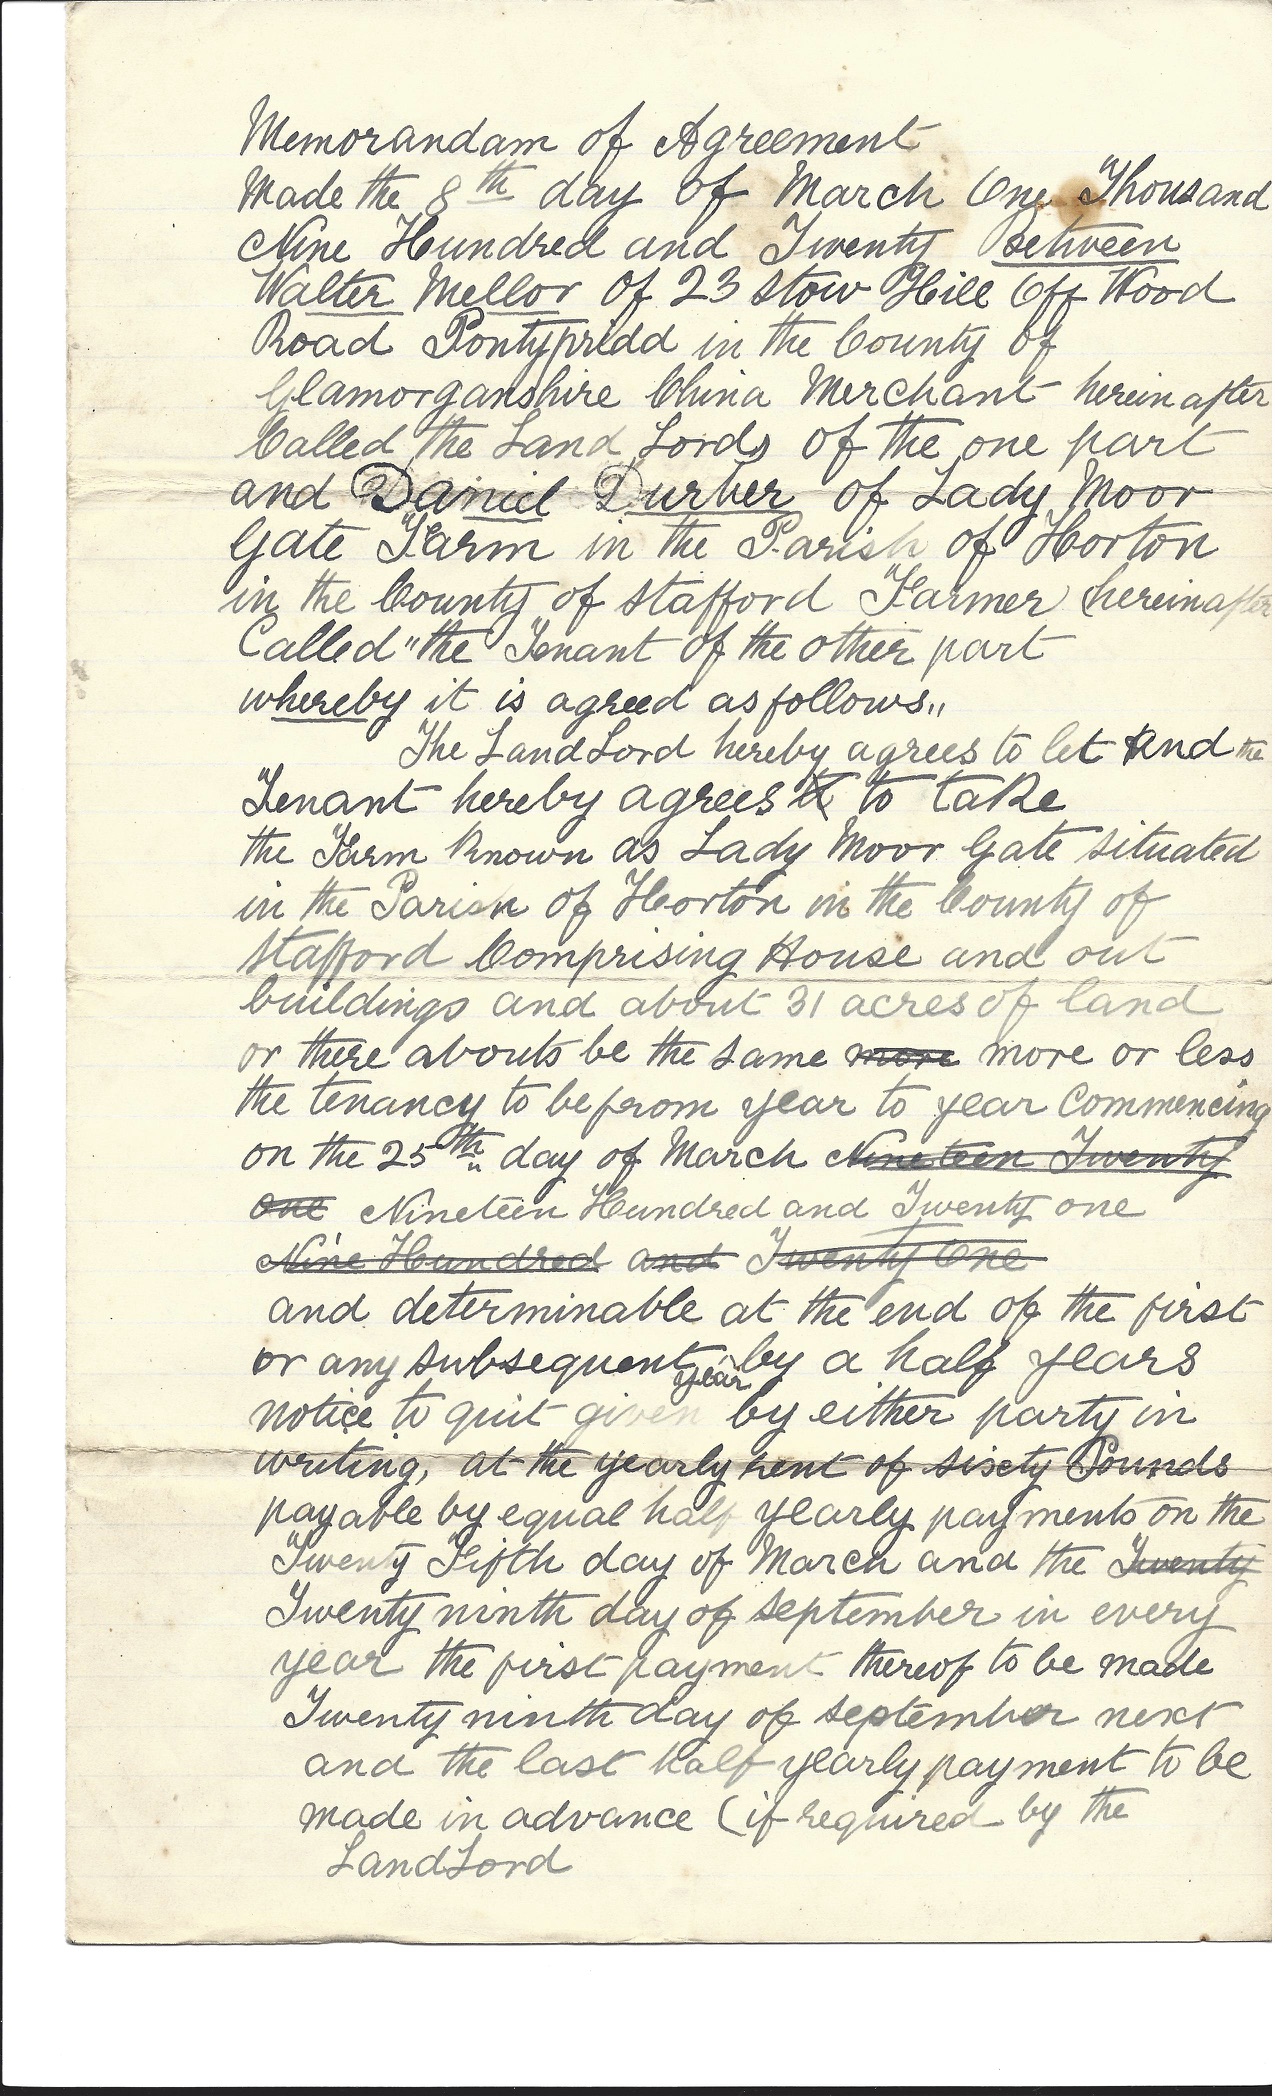 Memorandam of Agreement
Made the 8th day of March One Thousand
Nine Hundred and Twenty between
Walter Mellor of 23 Stow Hill Off Wood
Road Pontypridd in the County of
Glamorganshire China Merchant hereinafter
Called the Land Lords of the one part
and Daniel Durber of Lady Moor
Gate Farm in the Parish of Horton
in the County of Stafford Farmer hereinafter
Called "the Tenant of the other part
whereby it is agreed as follows"
The LandLord hereby agrees to let and the
Tenant hereby agrees to take
the Farm Known as Lady Moor Gate Situated
in the Parish of Horton in the County of
Stafford Comprising House and out
buildings and about 31 acres of land
or there abouts be the same more more or less
the tenancy to be from year to year Commencing
on the 25th day of March Nineteen Twenty
one Nineteen Hundred and Twenty one
Nine Hundred and Twenty One
and determinable at the end of the first
or any subsequent year by a half years
notice to quit given by either party in
writing, at the yearly rent of sixty Pounds
payable by equal half yearly payments on the
Twenty Fifth day of March and the Twenty
Twenty ninth day of September in every
year the first payment thereof to be made
Twenty ninth day of September next
and the last half yearly payment to be
made in advance (if required by the
LandLord